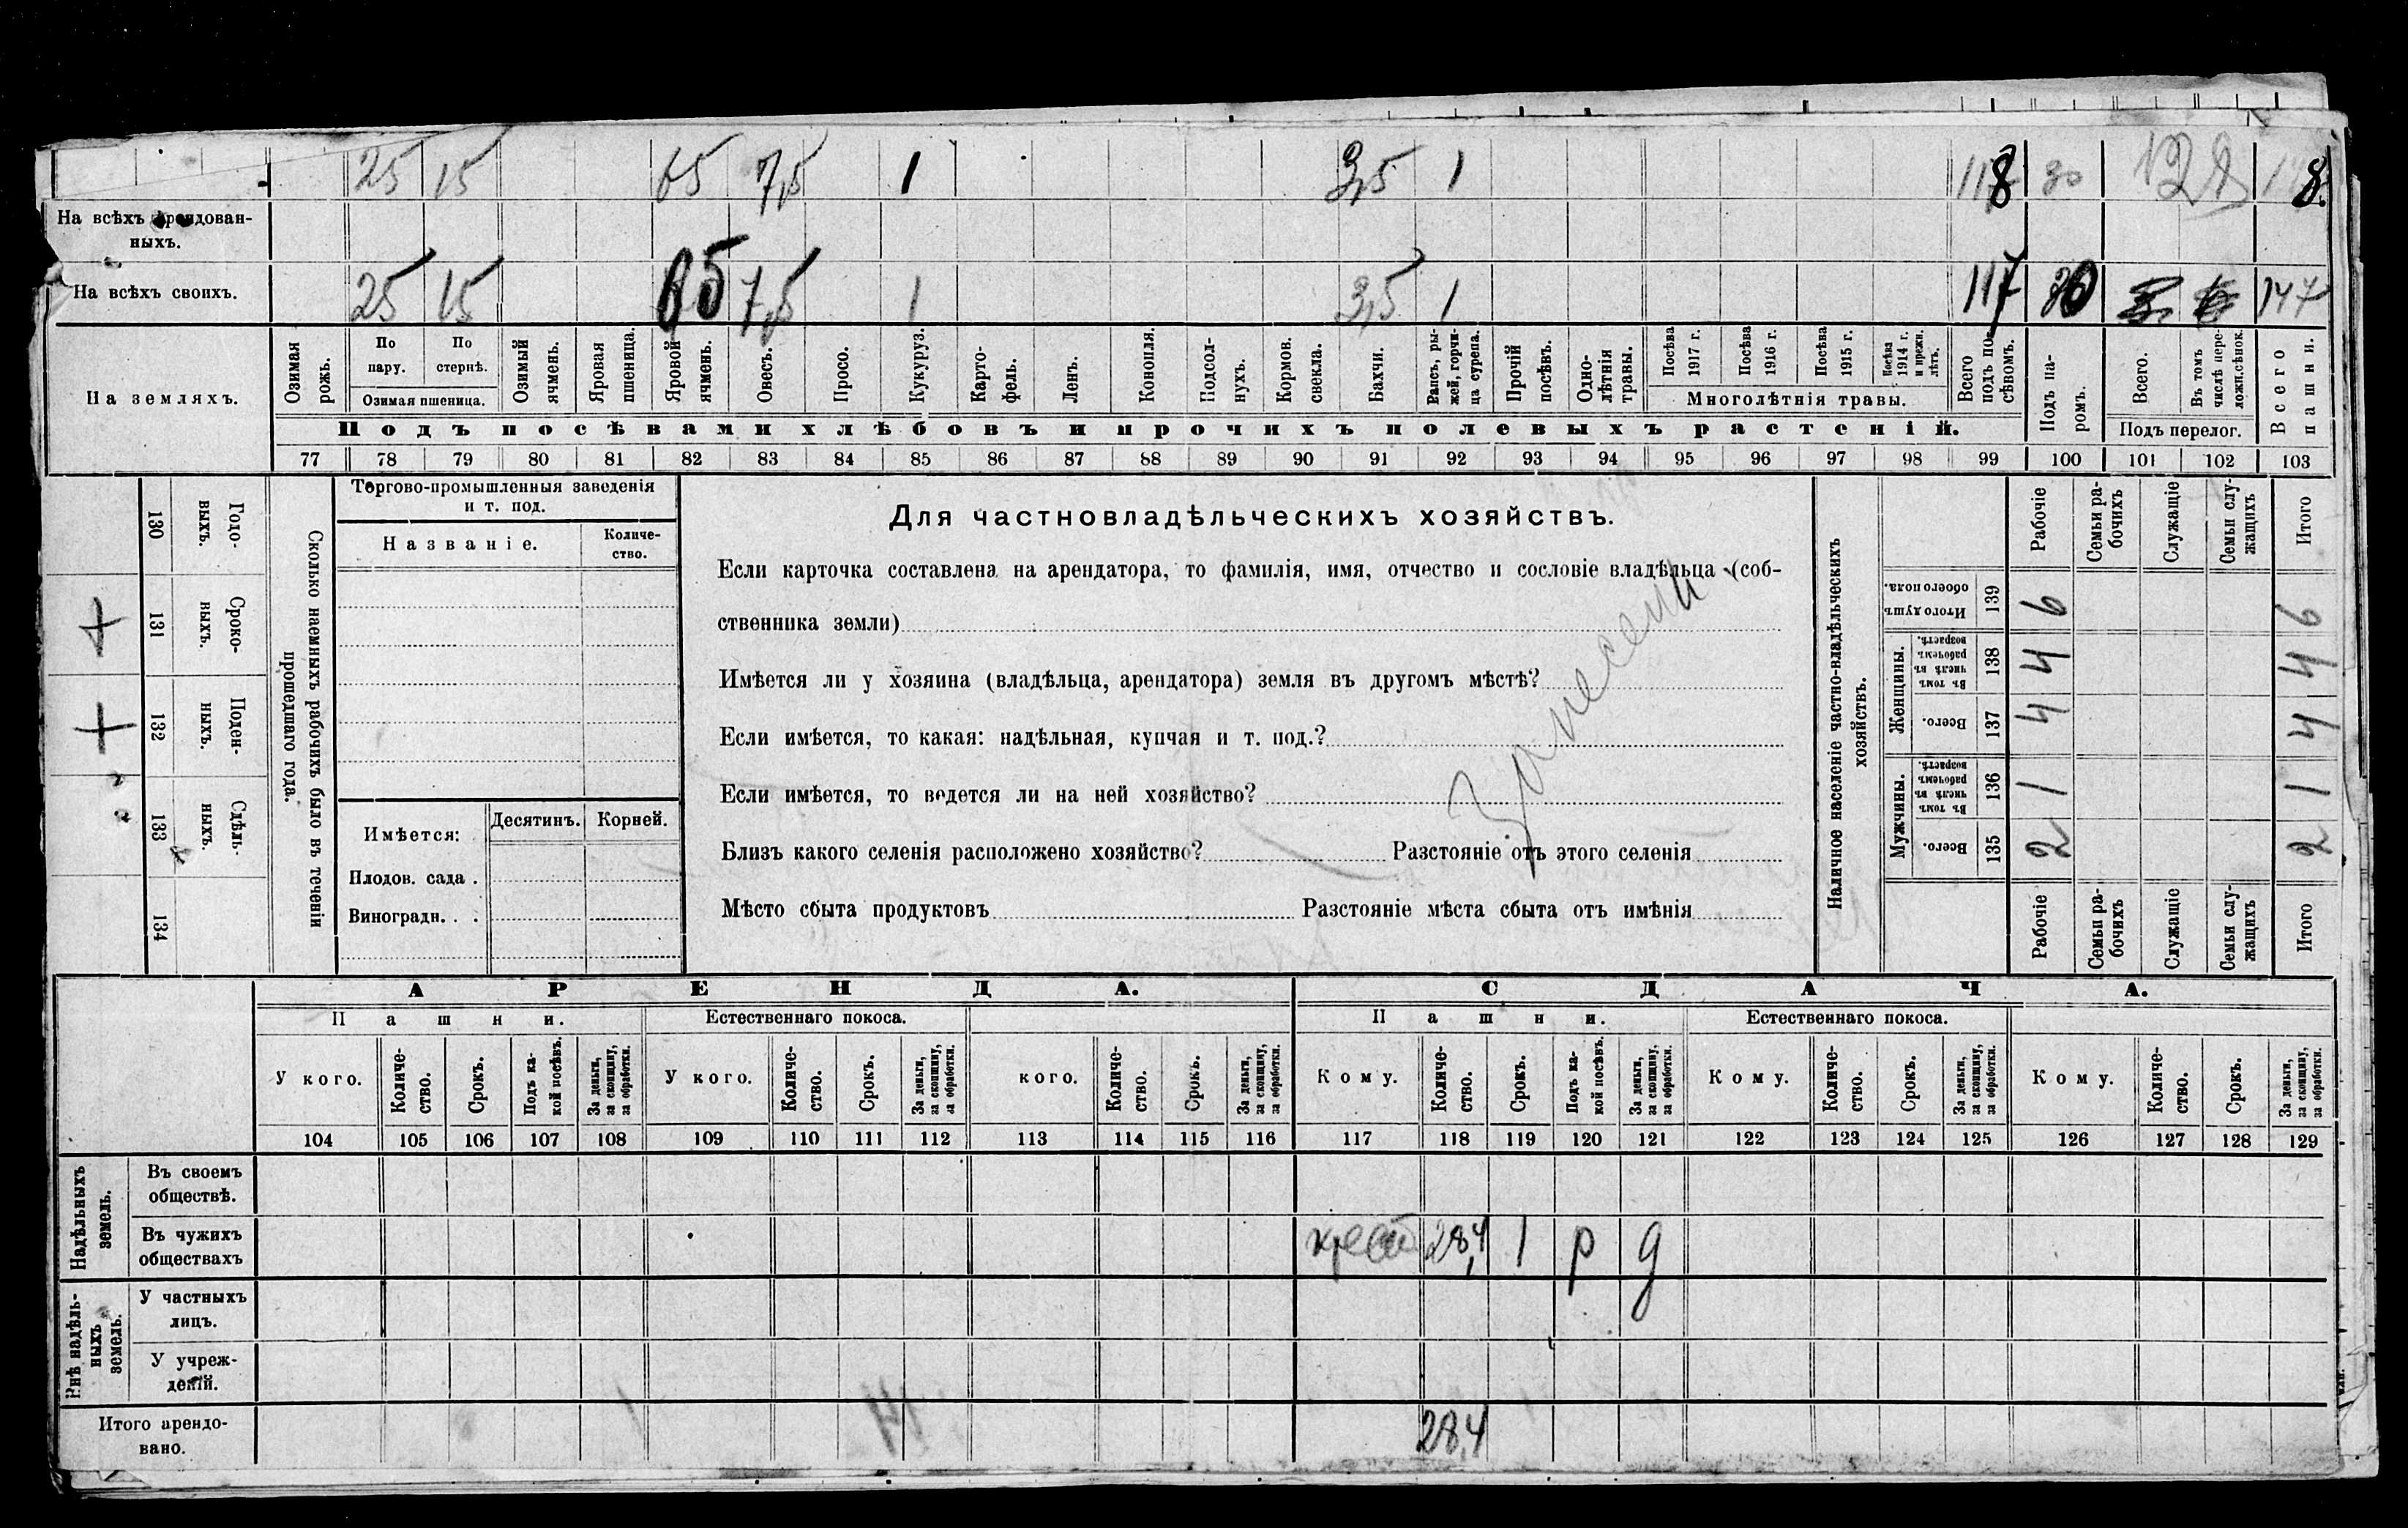 25 15 65 7,5 1 3,5 1 118 30 8.
На всѣхъ арендован-
ныхъ.
На всѣхъ своихъ. 25 15 65 7,5 1 3,5 1 117 30 147
На земляхъ.
Озимая рожь.
По пару.
По стернѣ.
Озимая пшеница.
Озимый ячмень.
Яровая пшеница.
Яровой ячмень.
Овесъ.
Просо.
Кукуруз.
Карто-
фель.
Ленъ.
Конопля.
Подсол-
нухъ.
Кормов. свекла.
Бахчи.
Рапсъ, ры-
жей, горчи-
ца сурепа.
Прочій посѣвъ.
Одно-
лѣтнія травы.
Посѣва 1917 г.
Посѣва 1916 г.
Посѣва 1915 г.
Посѣва 1914 г. и прежн. лѣтъ.
Многолѣтнія травы.
Всего подъ по-
сѣвомъ.
Подъ посѣвами хлѣбовъ и прочихъ полевыхъ растеній.
Подъ па-
ромъ.
Всего.
Въ томъ числѣ пере-
ложн. сѣнок.
Подъ перелог.
Всего пашни.
77 78 79 80 81 82 83 84 85 86 87 88 89 90 91 92 93 94 95 96 97 98 99 100 101 102 103
130 Годо-
выхъ.
131 Сроко-
ныхъ.
132 Поден-
ныхъ.
133 Сдѣль-
ныхъ.
134
Сколько наемныхъ рабочихъ было въ теченіи
прошедшаго года.
Торгово-промышленныя заведенія
и т. под.
Названіе.
Количе-
ство.
Имѣется: Десятинъ. Корней.
Плодов. сада .
Виноградн. . .
Для частновладѣльческихъ хозяйствъ.
Если карточка составлена на арендатора, то фамилія, имя, отчество и сословіе владѣльца (соб-
ственника земли)
Имѣется ли у хозяина (владѣльца, арендатора) земля въ другомъ мѣстѣ?
Если имѣется, то какая: надѣльная, купчая и т. под.?
Если имѣется, то ведется ли на ней хозяйство?
Близъ какого селенія расположено хозяйство? Разстояніе отъ этого селенія
Мѣсто сбыта продуктовъ Разстояніе мѣста сбыта отъ имѣнія
Занесены
Наличное населеніе частно-владѣльческихъ
хозяйствъ.
Рабочіе
Семьи ра-
бочихъ
Служащіе
Семьи слу-
жащихъ
Итого
Итого душъ обоего пола. 139 6 6
Женщины.
Въ томъ числѣ въ рабочемъ возрастѣ. 138 4 4
Всего. 137 4 4
Мужчины.
Въ томъ числѣ въ рабочемъ возрастѣ. 136 1 1
Всего. 135 2 2
Рабочіе
Семьи ра-
бочихъ
Служащіе
Семьи слу-
жащихъ
Итого
АРЕНДА. СДАЧА.
Пашни. Естественнаго покоса. Пашни. Естественнаго покоса.
У кого.
Количе-
ство.
Срокъ.
Подъ ка-
кой посѣвъ.
За деньги, за скопщину, за обработки.
У кого.
Количе-
ство.
Срокъ.
За деньги, за скопщину, за обработки.
кого.
Количе-
ство.
Срокъ.
За деньги, за скопщину, за обработки.
Кому.
Количе-
ство.
Срокъ.
Подъ ка-
кой посѣвъ.
За деньги, за скопщину, за обработки.
Кому.
Количе-
ство.
Срокъ.
За деньги, за скопщину, за обработки.
Кому.
Количе-
ство.
Срокъ.
За деньги, за скопщину, за обработки.
104 105 106 107 108 109 110 111 112 113 114 115 116 117 118 119 120 121 122 123 124 125 126 127 128 129
Надѣльныхъ
земель.
Въ своемъ
обществѣ.
Въ чужихъ
обществахъ
крест 28,4 1 р д
Внѣ надѣль-
ныхъ
земель.
У частныхъ
лицъ.
У учреж-
деній.
Итого арендо-
вано.
28,4